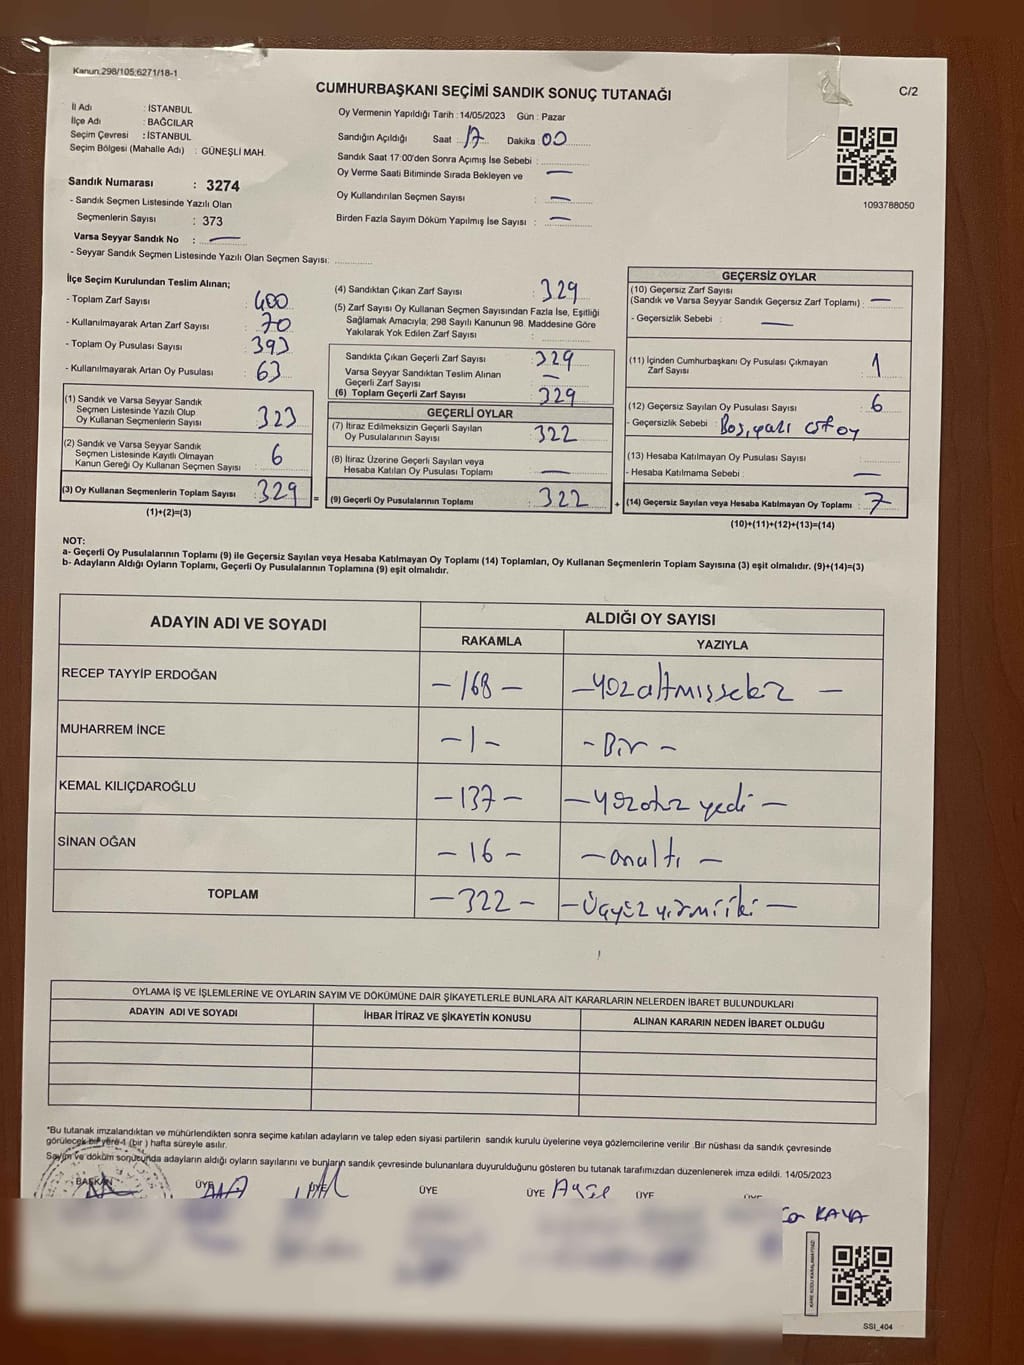 Kanun.298/105;6271/18-1
CUMHURBAŞKANI SEÇİMİ SANDIK SONUÇ TUTANAĞI
C/2
İl Adı : İSTANBUL
İlçe Adı : BAĞCILAR
Seçim Çevresi : İSTANBUL
Seçim Bölgesi (Mahalle Adı) : GÜNEŞLİ MAH.
Oy Vermenin Yapıldığı Tarih : 14/05/2023 Gün : Pazar
Sandığın Açıldığı Saat : 17 Dakika : 00
Sandık Saat 17:00'den Sonra Açımış İse Sebebi :
Oy Verme Saati Bitiminde Sırada Bekleyen ve —
Oy Kullandırılan Seçmen Sayısı : —
Birden Fazla Sayım Döküm Yapılmış İse Sayısı : —
1093788050
Sandık Numarası : 3274
- Sandık Seçmen Listesinde Yazılı Olan
Seçmenlerin Sayısı : 373
Varsa Seyyar Sandık No : —
- Seyyar Sandık Seçmen Listesinde Yazılı Olan Seçmen Sayısı:
İlçe Seçim Kurulundan Teslim Alınan;
- Toplam Zarf Sayısı : 400
- Kullanılmayarak Artan Zarf Sayısı : 70
- Toplam Oy Pusulası Sayısı : 393
- Kullanılmayarak Artan Oy Pusulası : 63
(1) Sandık ve Varsa Seyyar Sandık
Seçmen Listesinde Yazılı Olup
Oy Kullanan Seçmenlerin Sayısı : 323
(2) Sandık ve Varsa Seyyar Sandık
Seçmen Listesinde Kayıtlı Olmayan
Kanun Gereği Oy Kullanan Seçmen Sayısı : 6
(3) Oy Kullanan Seçmenlerin Toplam Sayısı : 329 =
(1)+(2)=(3)
(4) Sandıktan Çıkan Zarf Sayısı : 329
(5) Zarf Sayısı Oy Kullanan Seçmen Sayısından Fazla İse, Eşitliği
Sağlamak Amacıyla, 298 Sayılı Kanunun 98. Maddesine Göre
Yakılarak Yok Edilen Zarf Sayısı :
Sandıkta Çıkan Geçerli Zarf Sayısı : 329
Varsa Seyyar Sandıktan Teslim Alınan
Geçerli Zarf Sayısı : —
(6) Toplam Geçerli Zarf Sayısı : 329
GEÇERLİ OYLAR
(7) İtiraz Edilmeksizin Geçerli Sayılan
Oy Pusulalarının Sayısı : 322
(8) İtiraz Üzerine Geçerli Sayılan veya
Hesaba Katılan Oy Pusulası Toplamı : —
(9) Geçerli Oy Pusulalarının Toplamı : 322 +
GEÇERSİZ OYLAR
(10) Geçersiz Zarf Sayısı
(Sandık ve Varsa Seyyar Sandık Geçersiz Zarf Toplamı) : —
- Geçersizlik Sebebi : —
(11) İçinden Cumhurbaşkanı Oy Pusulası Çıkmayan
Zarf Sayısı : 1
(12) Geçersiz Sayılan Oy Pusulası Sayısı : 6
- Geçersizlik Sebebi : Boş, oy
(13) Hesaba Katılmayan Oy Pusulası Sayısı :
- Hesaba Katılmama Sebebi : —
(14) Geçersiz Sayılan veya Hesaba Katılmayan Oy Toplamı : 7
(10)+(11)+(12)+(13)=(14)
NOT:
a- Geçerli Oy Pusulalarının Toplamı (9) ile Geçersiz Sayılan veya Hesaba Katılmayan Oy Toplamı (14) Toplamları, Oy Kullanan Seçmenlerin Toplam Sayısına (3) eşit olmalıdır. (9)+(14)=(3)
b- Adayların Aldığı Oyların Toplamı, Geçerli Oy Pusulalarının Toplamına (9) eşit olmalıdır.
ADAYIN ADI VE SOYADI
ALDIĞI OY SAYISI
RAKAMLA YAZIYLA
RECEP TAYYİP ERDOĞAN – 168 – – yüzaltmışsekiz –
MUHARREM İNCE – 1 – – Bir –
KEMAL KILIÇDAROĞLU – 137 – – yüzotuz yedi –
SİNAN OĞAN – 16 – – onaltı –
TOPLAM – 322 – – Üçyüz yirmi iki –
OYLAMA İŞ VE İŞLEMLERİNE VE OYLARIN SAYIM VE DÖKÜMÜNE DAİR ŞİKAYETLERLE BUNLARA AİT KARARLARIN NELERDEN İBARET BULUNDUKLARI
ADAYIN ADI VE SOYADI İHBAR İTİRAZ VE ŞİKAYETİN KONUSU ALINAN KARARIN NEDEN İBARET OLDUĞU
*Bu tutanak imzalandıktan ve mühürlendikten sonra seçime katılan adayların ve talep eden siyasi partilerin sandık kurulu üyelerine veya gözlemcilerine verilir .Bir nüshası da sandık çevresinde
görülecek bir yere 1 (bir ) hafta süreyle asılır.
Sayım ve döküm sonucunda adayların aldığı oyların sayılarını ve bunların sandık çevresinde bulunanlara duyurulduğunu gösteren bu tutanak tarafımızdan düzenlenerek imza edildi. 14/05/2023
BAŞKAN ÜYE ÜYE ÜYE ÜYE Ayşe ÜYE
KAYA
SSI_404